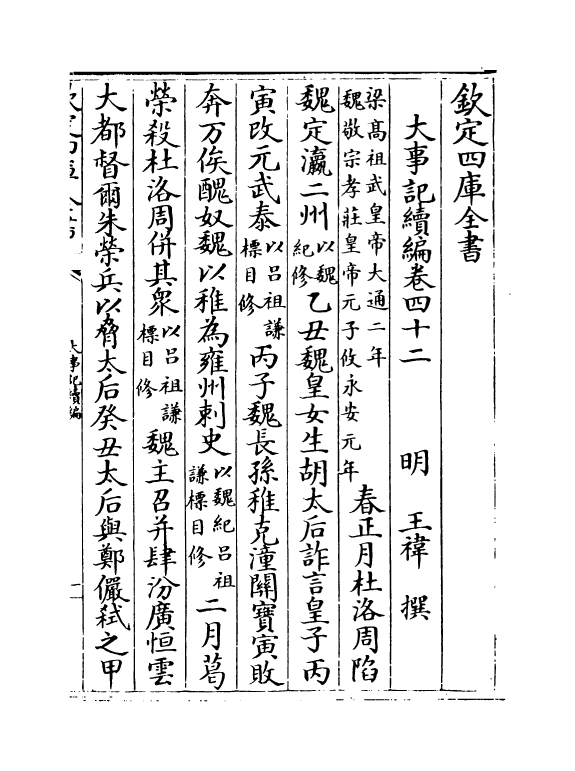 欽定四庫全書
大事記續編卷四十二　　明　王褘　撰
梁髙祖武皇帝大通二年
魏敬宗孝莊皇帝元子攸永安元年
春正月杜洛周陷
魏定瀛二州以魏紀修乙丑魏皇女生胡太后詐言皇子丙
寅改元武泰以呂祖謙標目修丙子魏長孫稚克潼關寶寅敗
奔万俟醜奴魏以稚為雍州刺史以魏紀呂祖謙標目修二月葛
榮殺杜洛周併其衆以呂祖謙標目修魏主召并肆汾廣恒雲
大都督爾朱榮兵以脅太后癸丑太后與鄭儼弑之甲
大事記續編